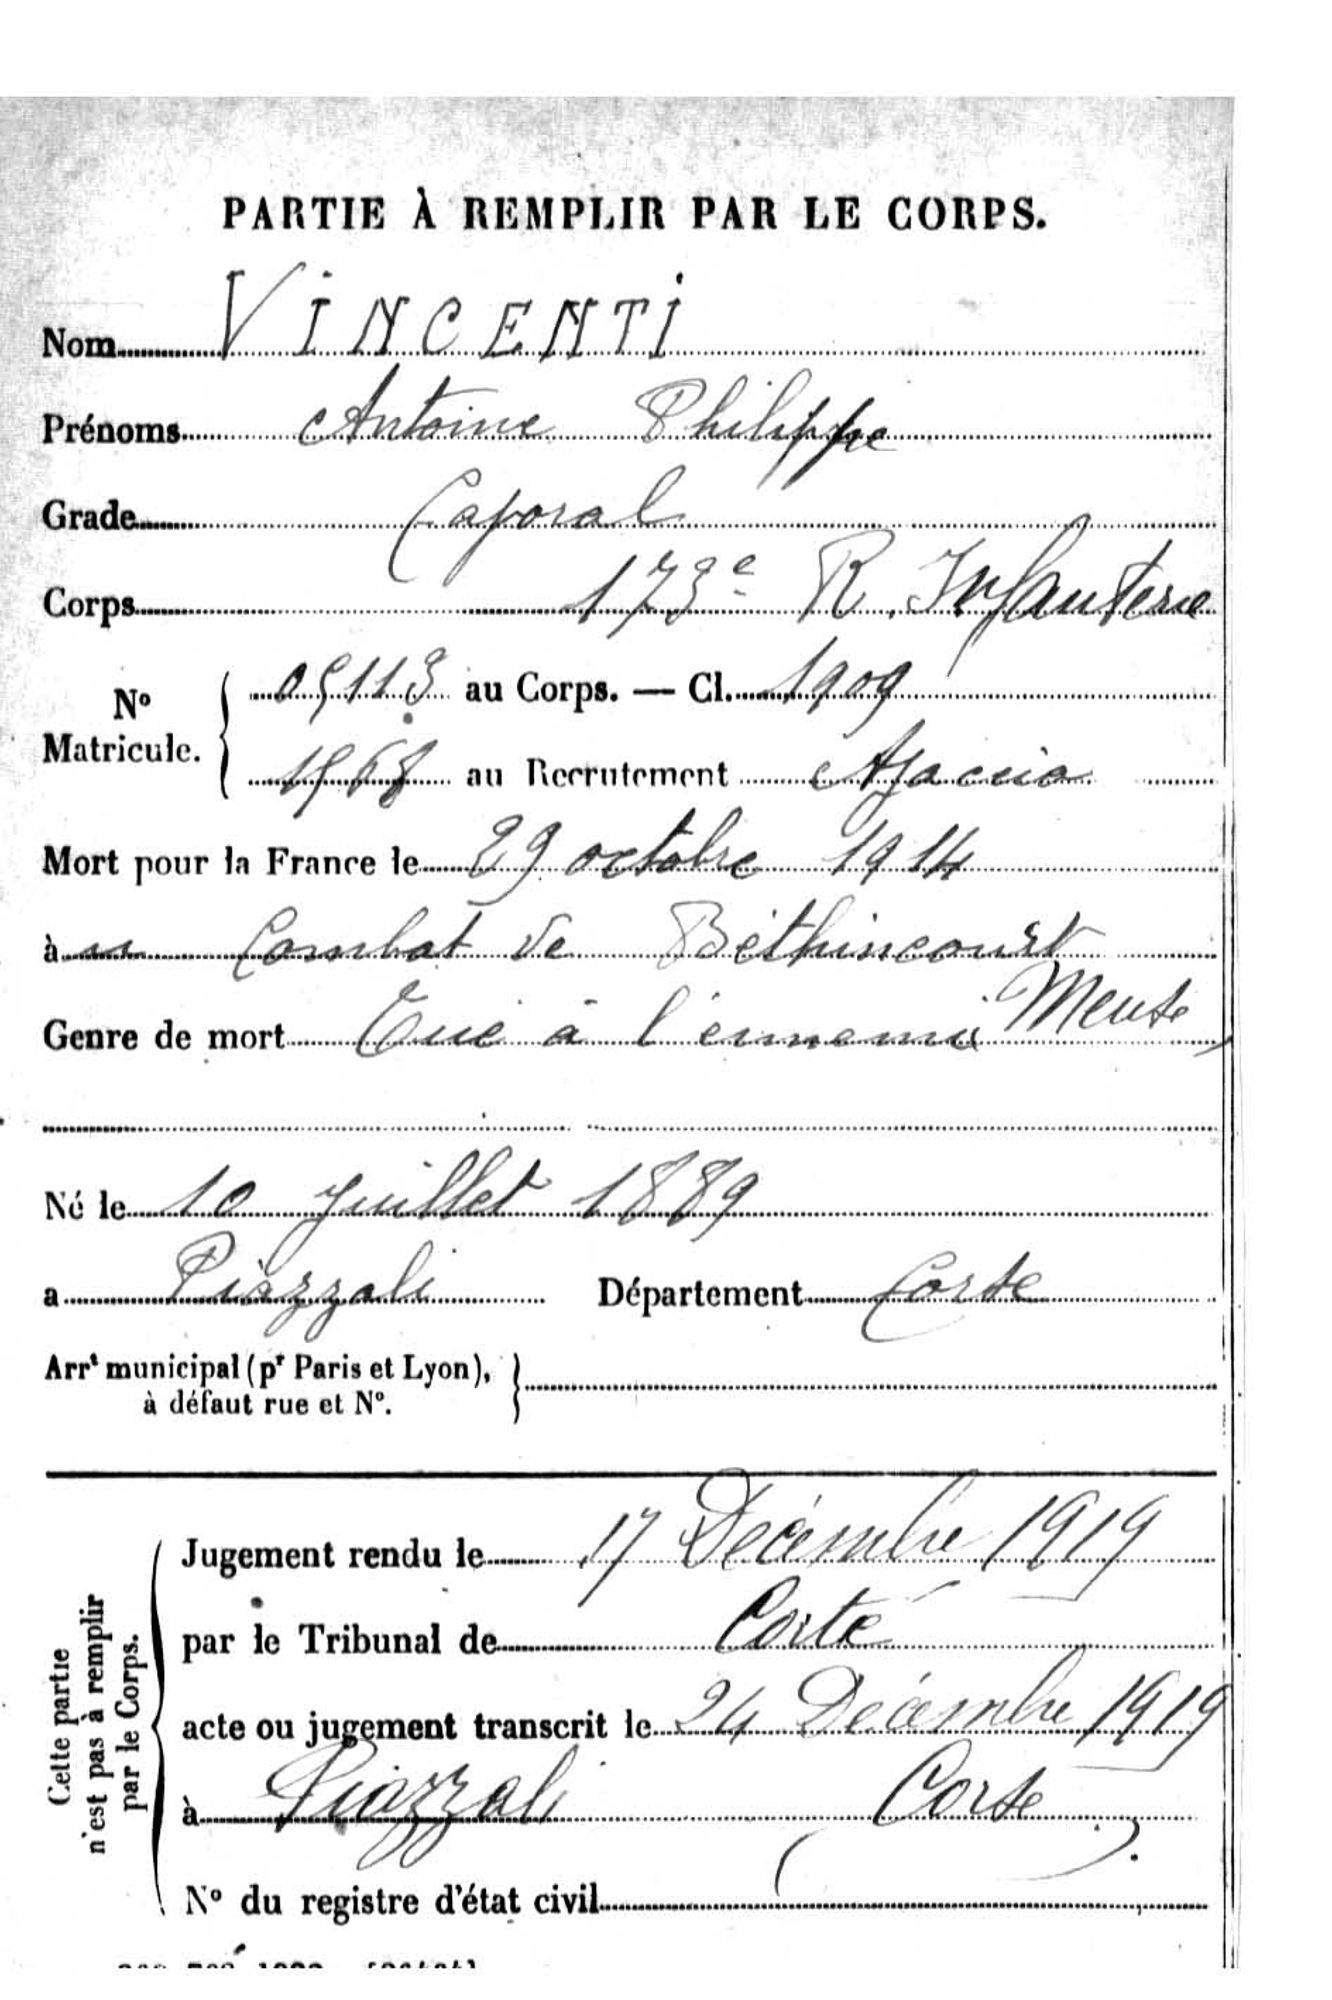 PARTIE À REMPLIR PAR LE CORPS.
Nom VINCENTI
Prénoms Antoine Philippe
Grade Caporal
Corps 173e R. Infanterie
No Matricule. { 05113 au Corps. — Cl. 1909
1568 au Recrutement Ajaccio
Mort pour la France le 29 octobre 1914
à Combat de Béthincourt
Genre de mort Tué à l'ennemi Meuse
Né le 10 Juillet 1889
a Piazzali Département Corse
Arrt municipal (pr Paris et Lyon), }
à défaut rue et No.
Cette partie
n'est pas à remplir
par le Corps.
Jugement rendu le 17 Décembre 1919
par le Tribunal de Corté
acte ou jugement transcrit le 24 Décembre 1919
à Piazzali (Corse).
No du registre d'état civil